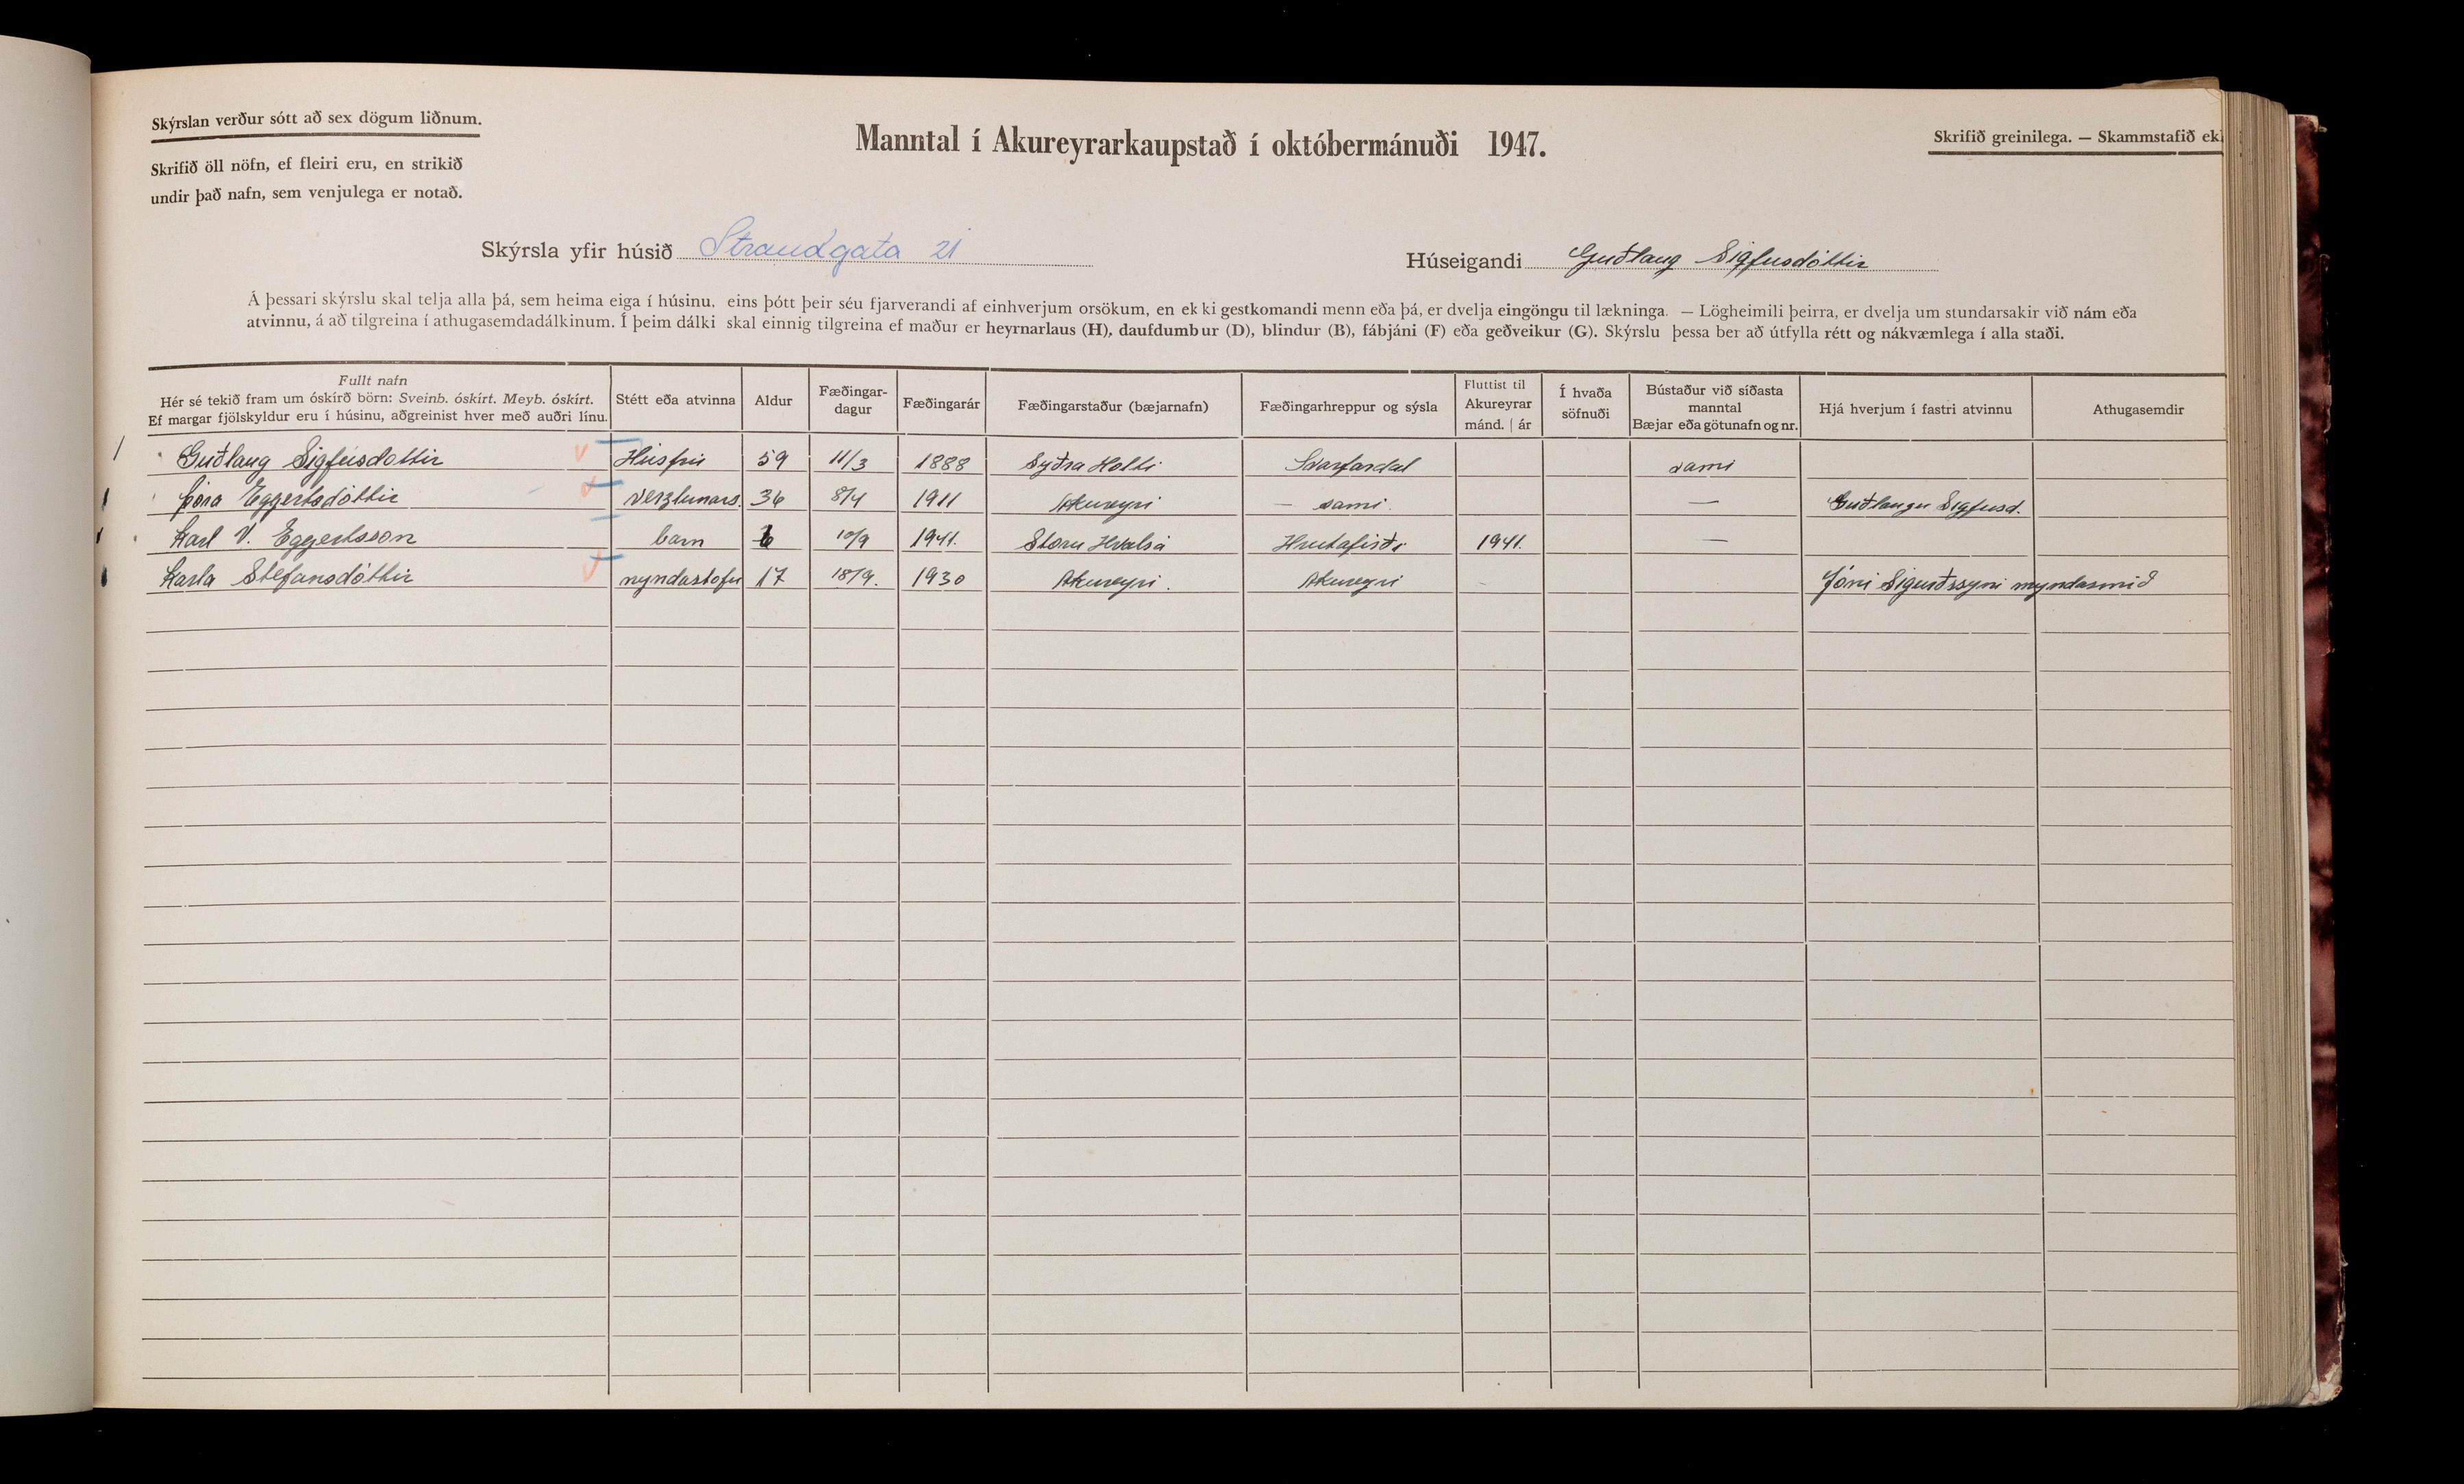 Skýrslan verður sótt að sex dögum liðnum.
Skrifið öll nöfn, ef fleiri eru, en strikið
undir það nafn, sem venjulega er notað.
Manntal í Akureyrarkaupstað í októbermánuði 1947.
Skrifið greinilega. — Skammstafið ekk
Skýrsla yfir húsið Strandgata 21
Húseigandi Guðlaug Sigfúsdóttir
Á þessari skýrslu skal telja alla þá, sem heima eiga í húsinu, eins þótt þeir séu fjarverandi af einhverjum orsökum, en ekki gestkomandi menn eða þá, er dvelja eingöngu til lækninga. — Lögheimili þeirra, er dvelja um stundarsakir við nám eða
atvinnu, á að tilgreina í athugasemdadálkinum. Í þeim dálki skal einnig tilgreina ef maður er heyrnarlaus (H), daufdumbur (D), blindur (B), fábjáni (F) eða geðveikur (G). Skýrslu þessa ber að útfylla rétt og nákvæmlega í alla staði.
Fullt nafn
Hér sé tekið fram um óskírð börn: Sveinb. óskírt. Meyb. óskírt.
Ef margar fjölskyldur eru í húsinu, aðgreinist hver með auðri línu.
Stétt eða atvinna
Aldur
Fæðingar-
dagur
Fæðingarár
Fæðingarstaður (bæjarnafn)
Fæðingarhreppur og sýsla
Fluttist til
Akureyrar
mánd. | ár
Í hvaða
söfnuði
Bústaður við síðasta
manntal
Bæjar eða götunafn og nr.
Hjá hverjum í fastri atvinnu
Athugasemdir
Guðlaug Sigfúsdóttir Húsfrú 59 11/3 1888 Syðra Holti Svarfardal sami
Þóra Eggertsdóttir verzlunars. 36 8/4 1911 Akureyri — sami. — Guðlaugu Sigfúsd.
Karl V. Eggertsson barn 6 10/9 1941. Stóru Hvalsá Hrútafirði 1941. —
Karla Stefansdóttir myndastofu 17 18/9. 1930 Akureyri. Akureyri Jóni Sigurðssyni myndasmið